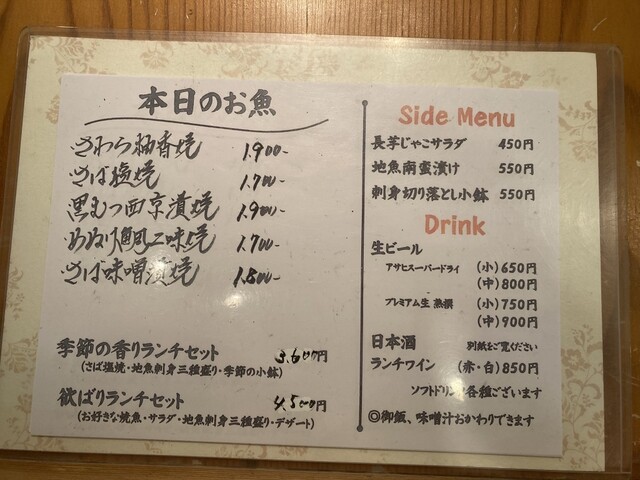 本日のお魚
さわら柚香焼 1.900-
さば塩焼 1.700-
黒むつ西京漬焼 1.900-
1.700-
さば味噌漬焼 1.800-
季節の香りランチセット 3.600円
(さば塩焼・地魚刺身三種盛り・季節の小鉢)
欲ばりランチセット 4.500円
(お好きな焼魚・サラダ・地魚刺身三種盛り・デザート)
Side Menu
長芋じゃこサラダ 450円
地魚南蛮漬け 550円
刺身切り落とし小鉢 550円
Drink
生ビール
アサヒスーパードライ (小)650円
(中)800円
プレミアム生 熟撰 (小)750円
(中)900円
日本酒 別紙をご覧ください
ランチワイン (赤・白)850円
ソフトドリンク各種ございます
◎御飯、味噌汁おかわりできます